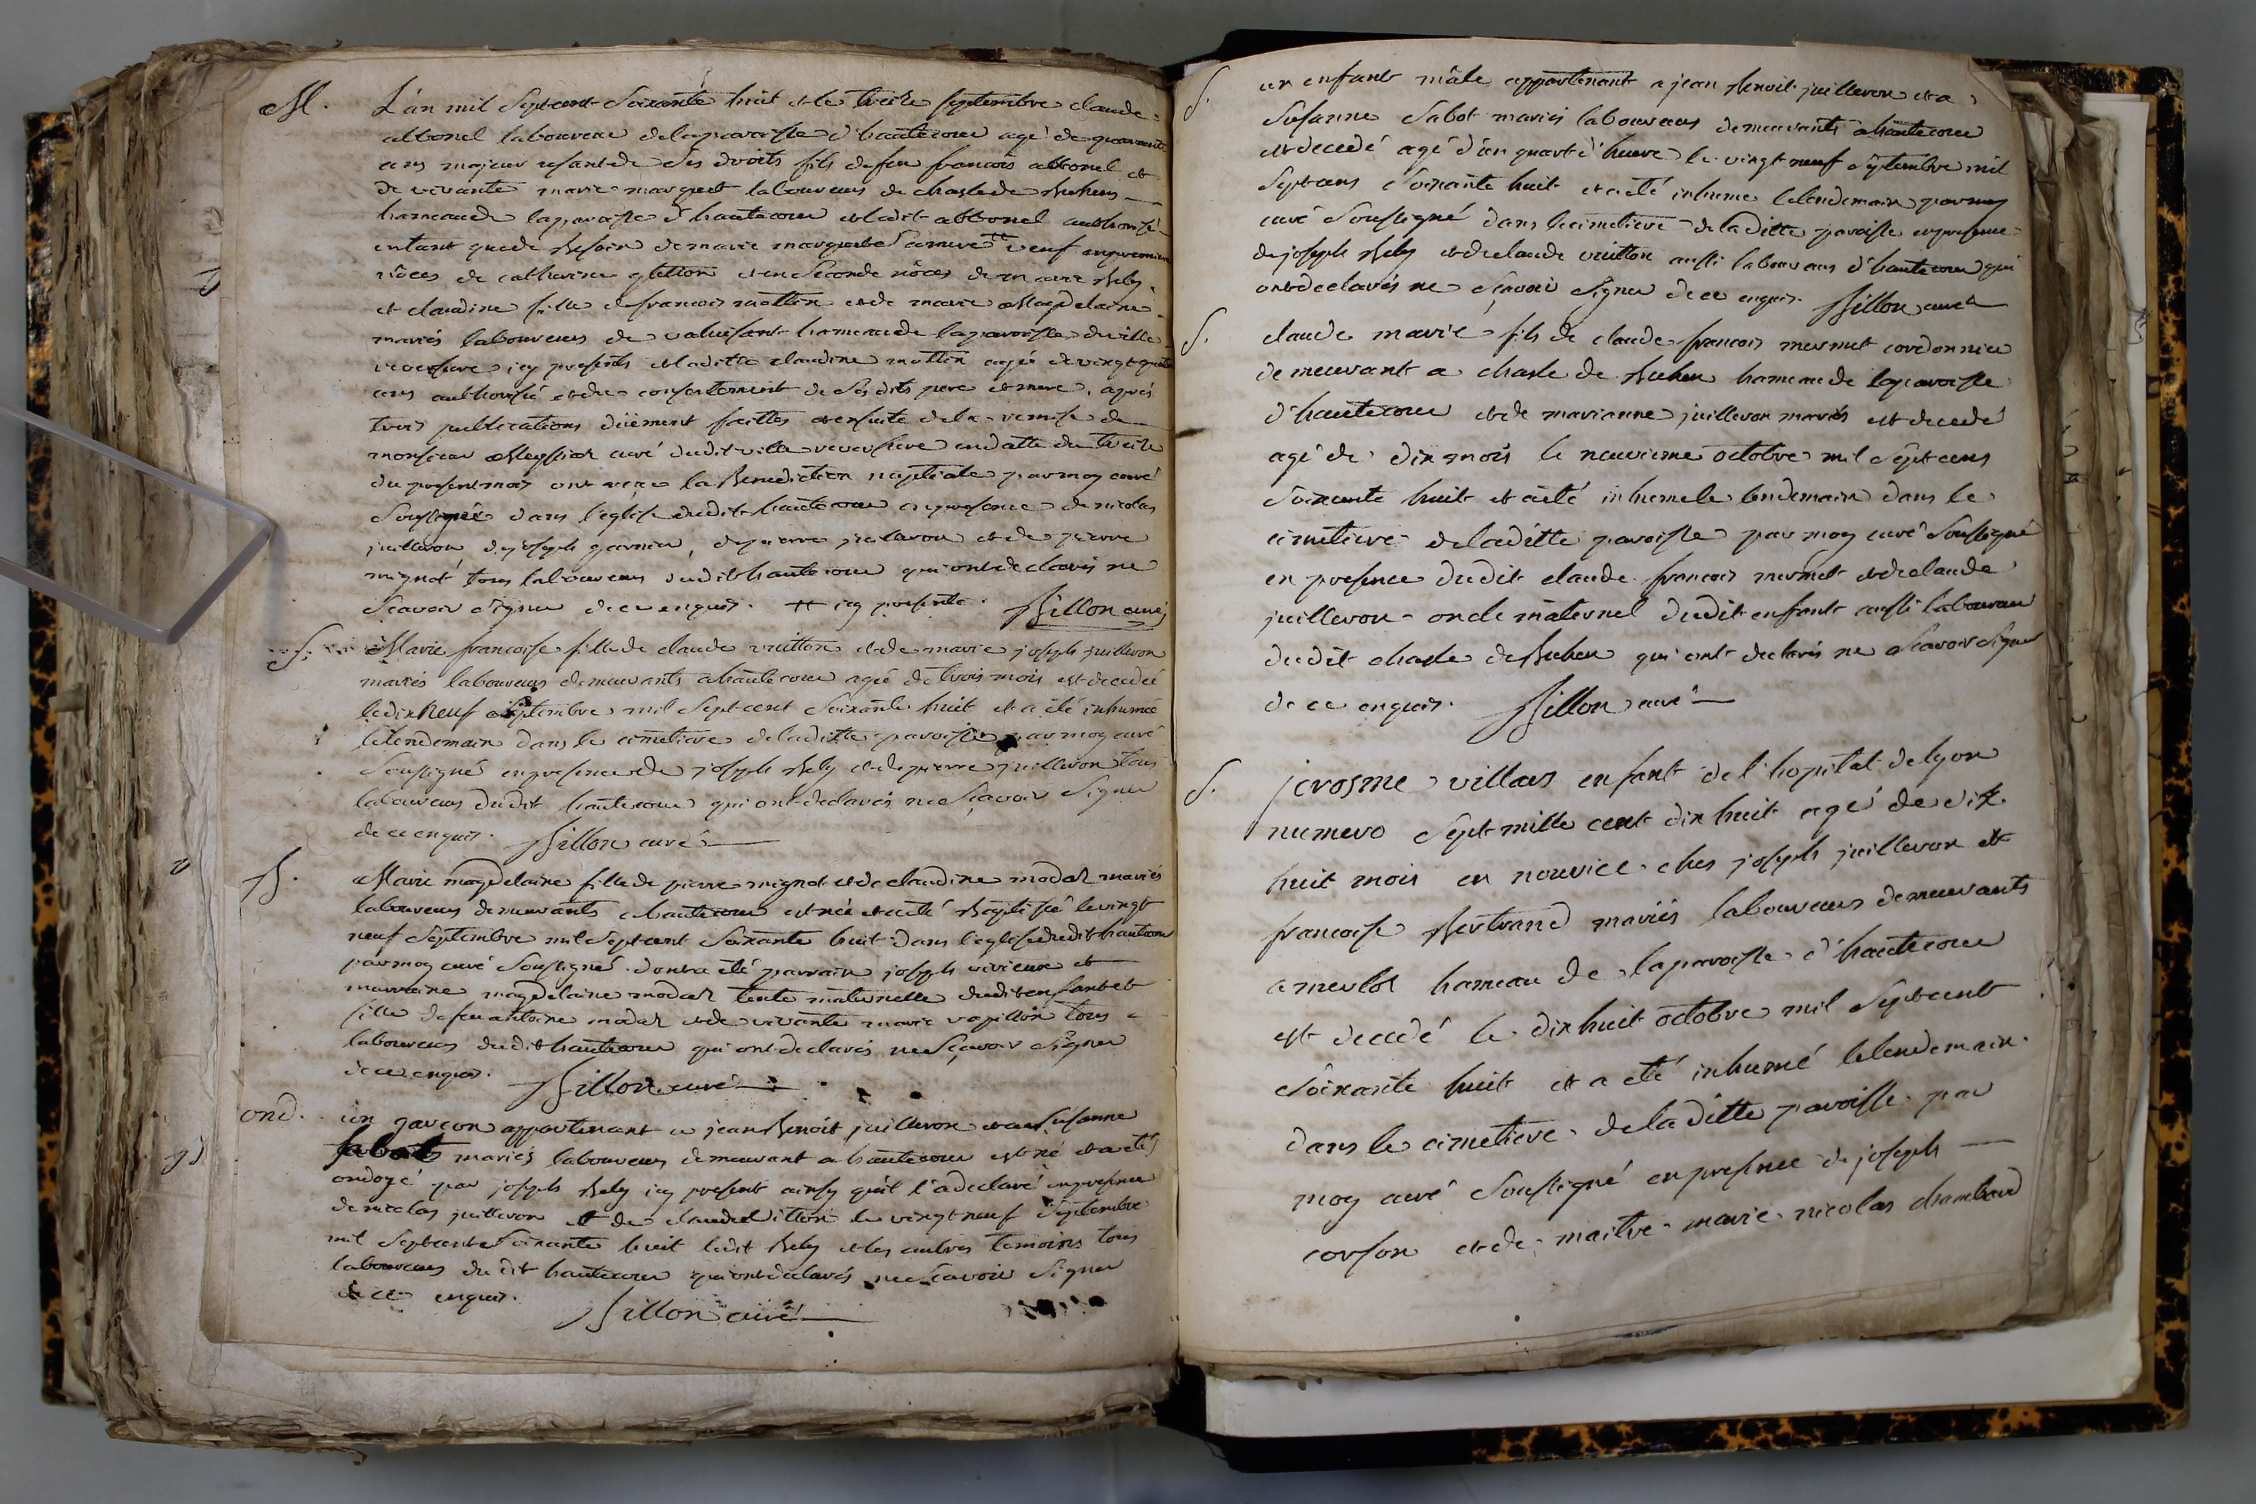 M. L'an mil Septcent Soixante huit et le treize Septembre claude
abbonel laboureur de la paroisse d'hautecour agé de quarante
ans majeur usant de ses droits fils de feu francois abbonel et
de vivante marie marguet laboureurs de chasle de Buhens
hameau de la paroisse d'hautecour et ledit abbonel authorisé
entant que de Besoin de marie marguet Sa mere ++ veuf en premieres
nôces de catherine gletton et en Seconde nôces de marie Beley
et claudine fille de francois mottin et de marie Magdelaine
mariés laboureurs de valuisant hameau de la paroisse de ville
reversure icy presents et laditte claudine mottin agée de vingt quatre
ans authorisée et du consentement de Ses dits pere et mere, après
trois publications düement faittes et ensuite de la remise de
monsieur curé dudit ville reversure en datte du treize
du present mois ont reçu la Benediction nuptiale par moy curé
Soussigné dans l'eglise dudit hautecour en presence de nicolas
juilleron de joseph garnier, de pierre juilleron et de pierre
mignot tous laboureurs dudit hautecour qui ont declarés ne
Scavoir Signer de ce enquis. ++ icy presente. Billon curé
S. Marie francoise fille de claude vuitton et de marie joseph juilleron
mariés laboureurs demeurants a hautecour agée de trois mois est decedée
le dix Neuf Septembre mil Septcent Soixante huit et a été inhumée
le lendemain dans le cimetiere de laditte paroisse par moy curé
Soussigné en presence de joseph Beley et de pierre juilleron tous
laboureurs dudit hautecour qui ont declarés ne Sçavoir Signer
de ce enquis. Billon curé
B. Marie magdelaine fille de pierre mignot et de claudine modaz mariés
laboureurs demeurants a hautecour est née et a été Baptisée le vingt
neuf Septembre mil Septcent Soixante huit dans l'eglise dudit hautecour
par moy curé Soussigné dont a été parrain joseph et
marraine magdelaine modaz tente maternelle dudit enfant et
fille de feu antoine modaz et de vivante marie vapillon tous
laboureurs dudit hautecour qui ont declarés ne Sçavoir Signer
de ce enquis. Billon curé
ond. un garcon appartenant a jean Benoit juilleron et a Susanne
Sabot mariés laboureurs demeurant a hautecour est né et a été
ondoyé par joseph Beley icy present ainsy qu'il l'a declaré en presence
de nicolas juilleron et de claude vitton le vingt neuf Septembre
mil Septcent Soixante huit ledit Beley et les autres temoins tous
laboureurs dudit hautecour qui ont declarés ne Sçavoir Signer
de ce enquis. Billon curé
S. un enfant mâle appartenant a jean Benoit juilleron et a
Susanne Sabot mariés laboureurs demeurants a hautecour
est decedé agé d'un quart d'heure le vingt neuf Septembre mil
Sept cens Soixante huit et a été inhumé le lendemain par moy
curé Soussigné dans le cimetiere de laditte paroisse en presence
de joseph Beley et de claude vuitton aussi laboureurs d'hautecour qui
ont declarés ne Sçavoir Signer de ce enquis. Billon curé
S. claude marie fils de claude francois mermet cordonnier
demeurant a chasle de Buhen hameau de la paroisse
d'hautecour et de marianne juilleron mariés est decedé
agé de dix mois le neuvieme octobre mil Sept cens
Soixante huit et a été inhumé le lendemain dans le
cimetiere de laditte paroisse par moy curé Soussigné
en presence dudit claude francois mermet et de claude
juilleron oncle maternel dudit enfant aussi laboureur
dudit chasle de Buhen qui ont declarés ne Scavoir Signer
de ce enquis. Billon curé
S. jerosme villars enfant de l'hopital de lyon
numero Sept mille cent dix huit agé de dix
huit mois en nourice ches joseph juilleron et
francoise Bertrand mariés laboureurs demeurants
a merloz hameau de la paroisse d'hautecour
est decedé le dix huit octobre mil Septcent
Soixante huit et a été inhumé le lendemain
dans le cimetiere de laditte paroisse par
moy curé Soussigné en presence de joseph
corson et de maitre marie nicolas chambard